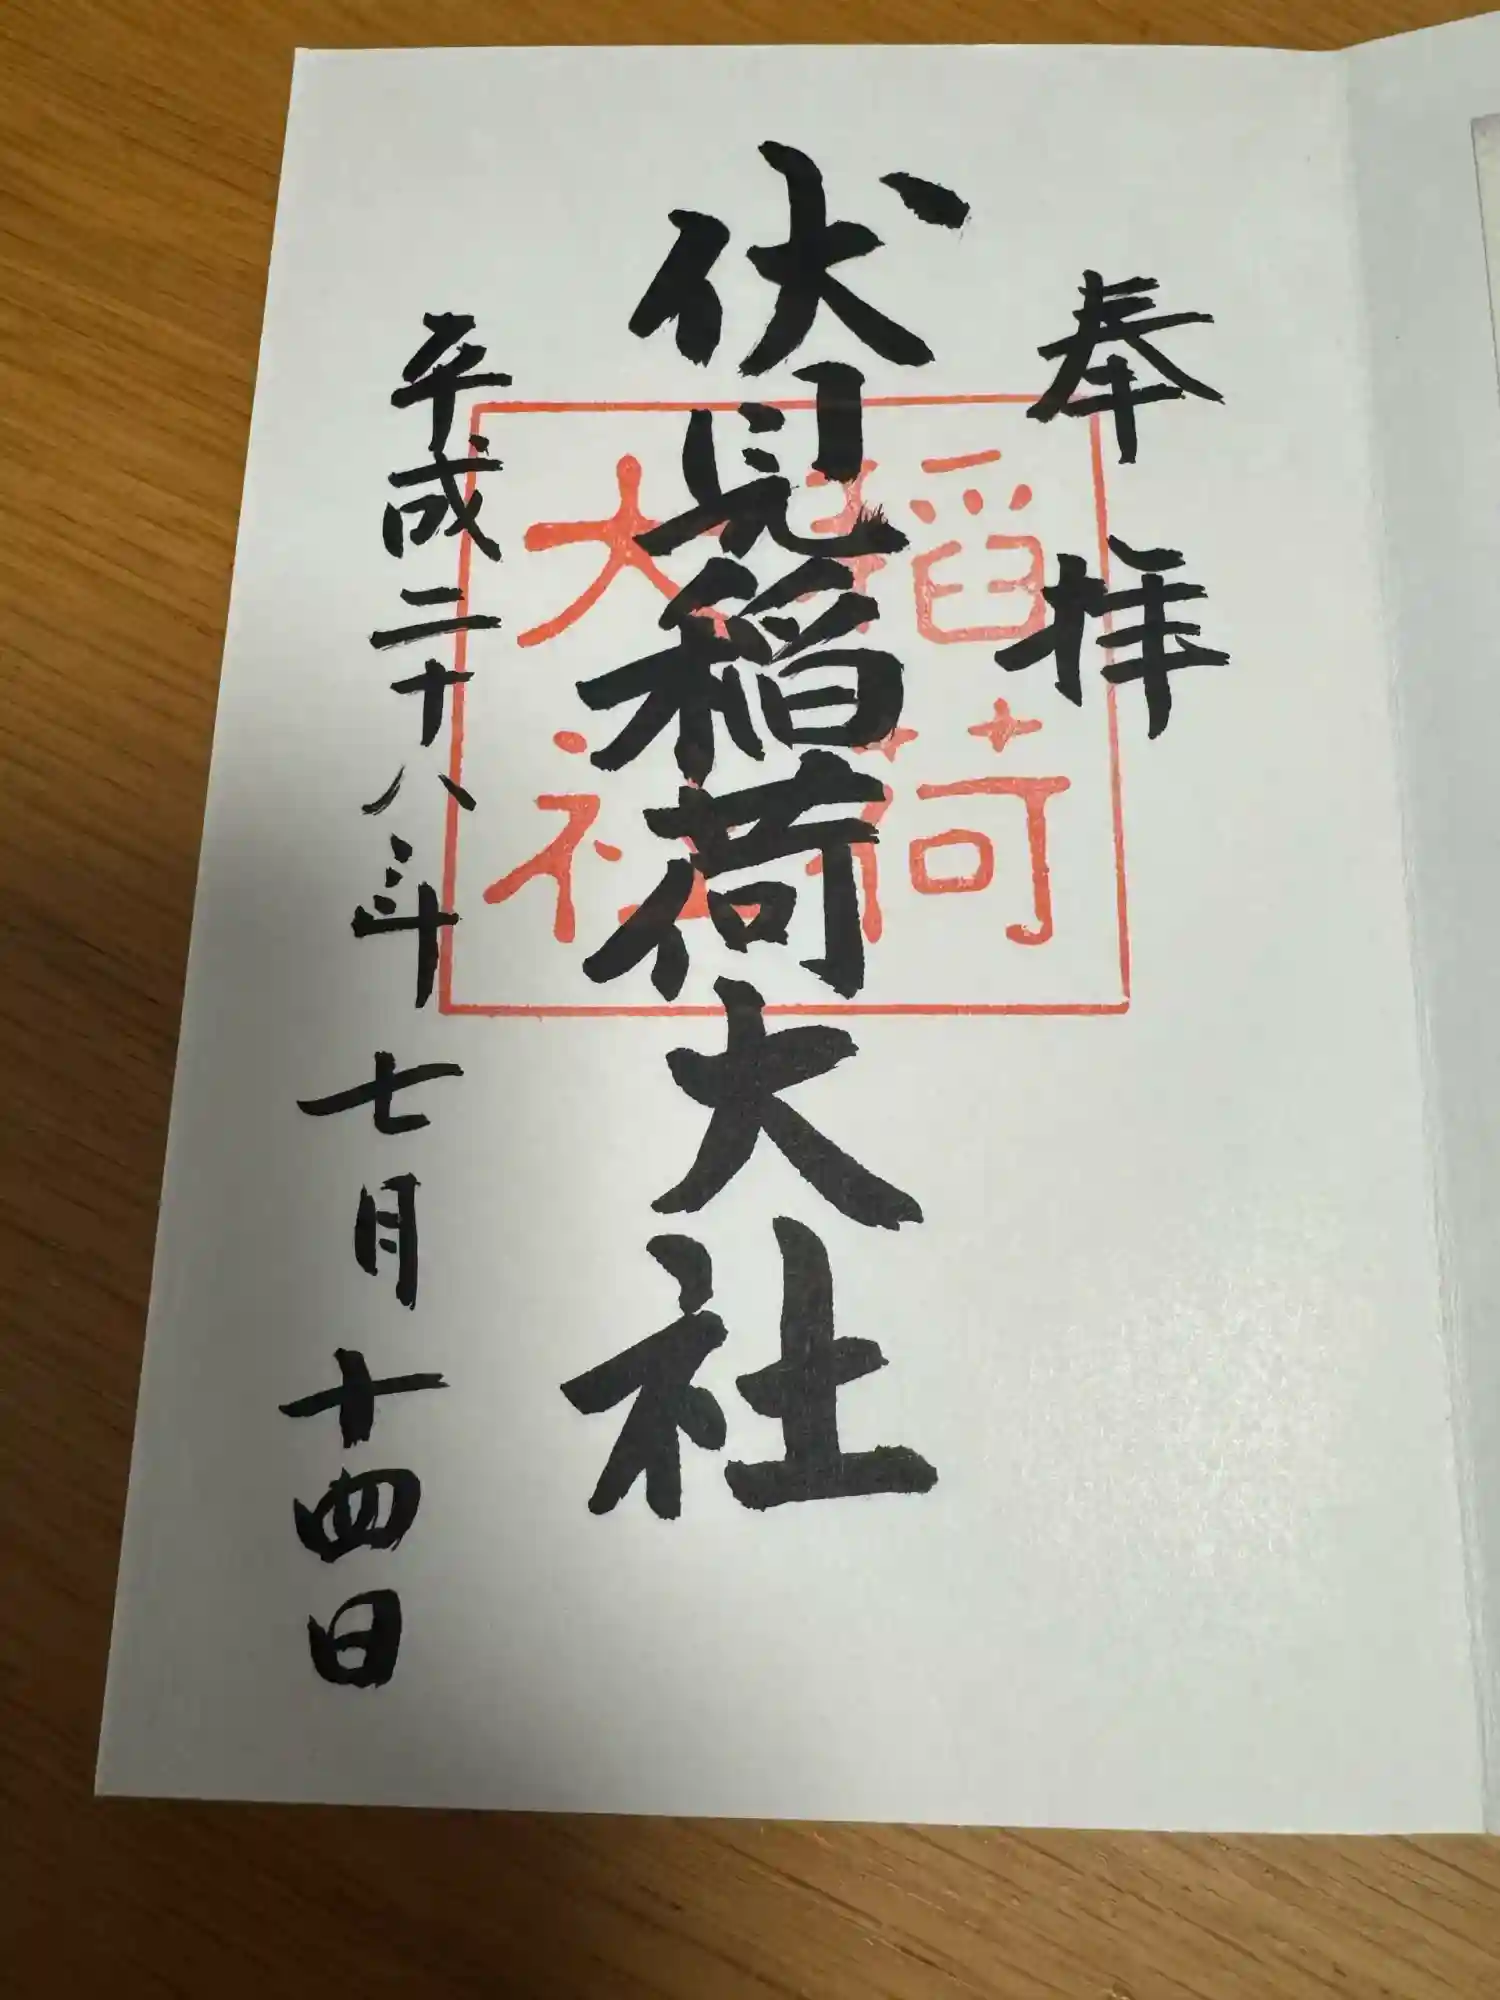 奉拝
伏見稲荷大社
平成二十八年七月十四日
稲荷
大社